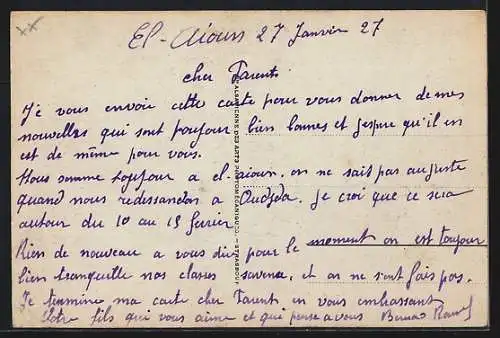 El-Aioun 27 Janvier 27
cher Parents
Je vous envoie cette carte pour vous donner de mes
nouvelles qui sont toujour bien bonnes et j'espre qu'il en
est de même pour vous.
Nous somme toujour a el aioun. on ne sait pas au juste
quand nous redissendon a Oudjda. Je croi que ce sera
autour du 10 au 15 fevrier
Rien de nouveau a vous dire pour le moment on est toujour
bien tranquille nos classes et on ne s'en fais pas.
Je termine ma carte cher Parents en vous embrassant
Votre fils qui vous aime et qui pense a vous
ALSACIENNE DES ARTS STRASBOURG